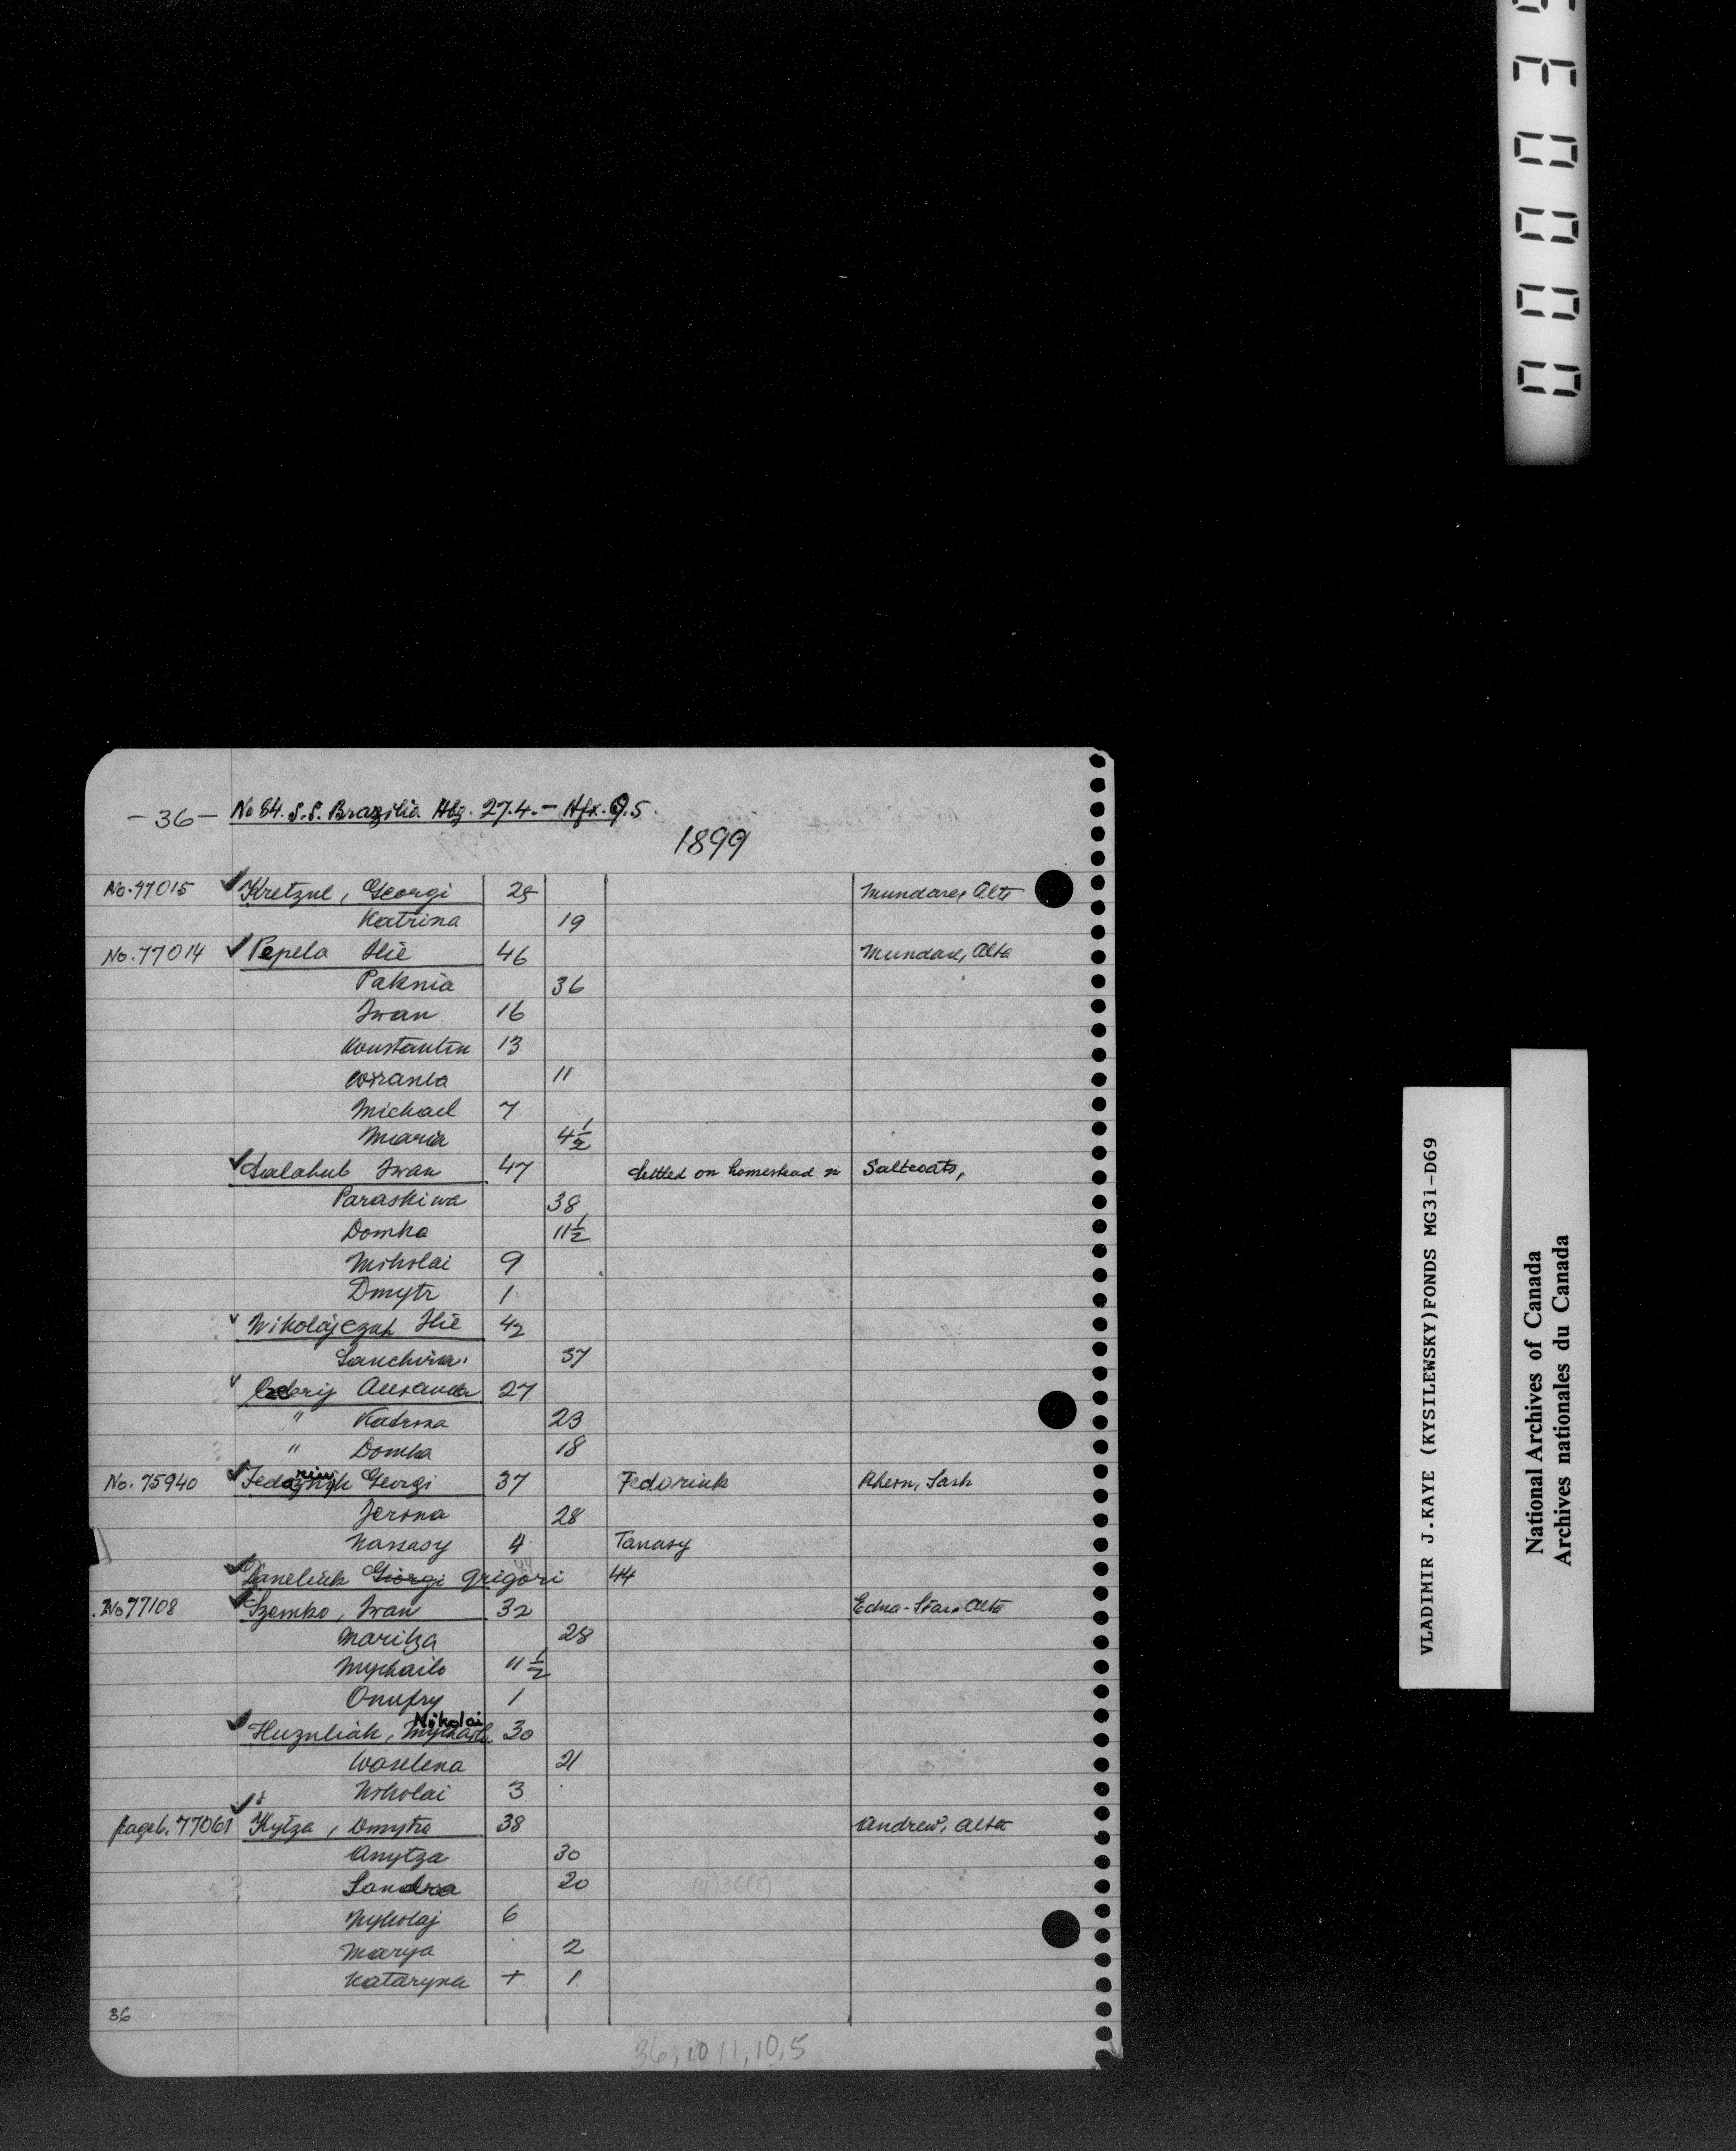 -36- No 84. S.S. Brazilia Hbg. 27.4. - Hfx. 9.5.
1899
No. 77015 Kretzul, Georgi 25 Mundare, Alta
Katrina 19
No. 77014 Pepela Ilie 46 Mundare, Alta
Paknia 36
Iwan 16
Konstantin 13
11
Michael 7
Maria 4½
Salahub Iwan 47 Settled on homestead in Saltcoats,
Paraskiwa 38
Domka 11½
Nikolai 9
Dmytr 1
Nikolajczuk Ilie 42
37
27
" Katrina 23
" Domka 18
No. 75940 Georgi 37 Fedoriuk Rhein, Sask
Jerina 28
Nassasy 4 Tanasy
Daneliuk Giorgi Grigori 44
No 77108 Szemko, Iwan 32 Edna-Star Alta
Maritza 28
Mychailo 11½
Onufry 1
Nikolai
Huzuliak, Mychailo 30
Waselena 21
Nikolai 3
pageb. 77061 Kytza, Dmytro 38 Andrew, Alta
Anytza 30
Sandra 20
Mykolaj 6
Marya 2
Kataryna + 1
36
36, 10 11, 10, 5
VLADIMIR J.KAYE (KYSILEWSKY)FONDS MG31-D69
National Archives of Canada
Archives nationales du Canada